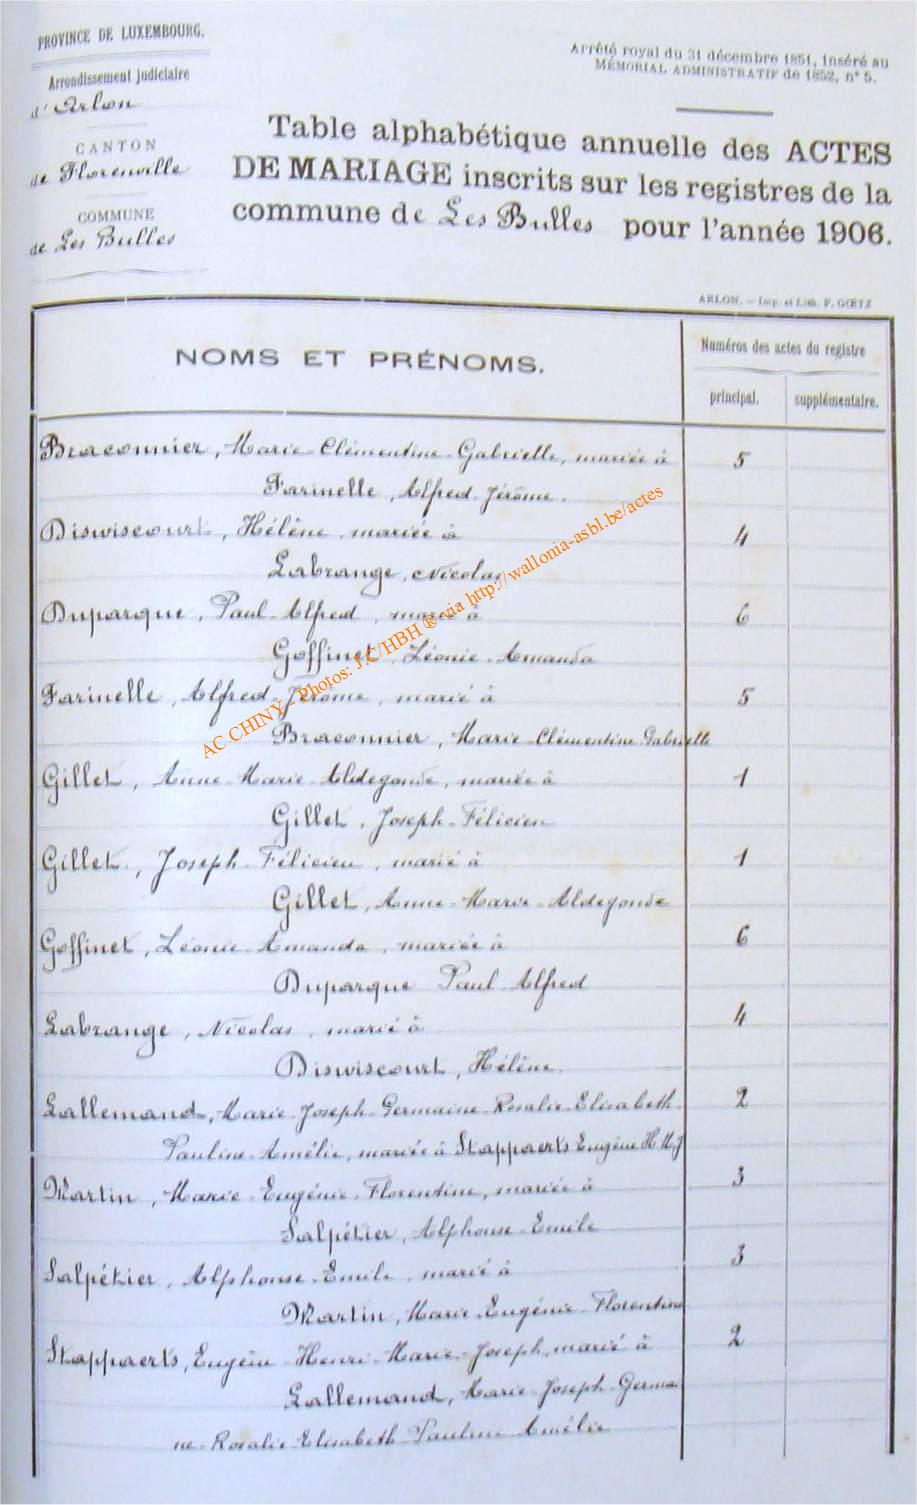 PROVINCE DE LUXEMBOURG.
Arrondissement judiciaire
d'Arlon
CANTON
de Florenville
COMMUNE
de Les Bulles
Arrêté royal du 31 décembre 1851, inséré au
MÉMORIAL ADMINISTRATIF de 1852, n° 5.
Table alphabétique annuelle des ACTES
DE MARIAGE inscrits sur les registres de la
commune de Les Bulles pour l'année 1906.
ARLON. — Imp. et Lith. F. GŒTZ
NOMS ET PRÉNOMS.
Numéros des actes du registre
principal.
supplémentaire.
Braconnier, Marie-Clémentine-Gabrielle, mariée à 5
Farinelle, Alfred-Jérôme.
Diswiscourt, Hélène, mariée à 4
Labrange, Nicolas
Duparque, Paul-Alfred, marié à 6
Goffinet, Léonie-Amanda
Farinelle, Alfred-Jérôme, marié à 5
Braconnier, Marie-Clémentine-Gabrielle
Gillet, Anne-Marie-Aldegonde, mariée à 1
Gillet, Joseph-Félicien
Gillet, Joseph-Félicien, marié à 1
Gillet, Anne-Marie-Aldegonde
Goffinet, Léonie-Amanda, mariée à 6
Duparque Paul-Alfred
Labrange, Nicolas, marié à 4
Diswiscourt, Hélène.
Lallemand, Marie-Joseph-Germaine-Rosalie-Elisabeth- 2
Pauline-Amélie, mariée à Stappaerts Eugène H.M.J
Martin, Marie-Eugénie-Florentine, mariée à 3
Salpétier, Alphonse-Emile
Salpétier, Alphonse-Emile, marié à 3
Martin, Marie-Eugénie-Florentine
Stappaerts, Eugène-Henri-Marie-Joseph, marié à 2
Lallemand, Marie-Joseph-Germai
ne-Rosalie-Elisabeth-Pauline-Amélie
AC CHINY / Photos: J.C/HBH ® via http://wallonia-asbl.be/actes